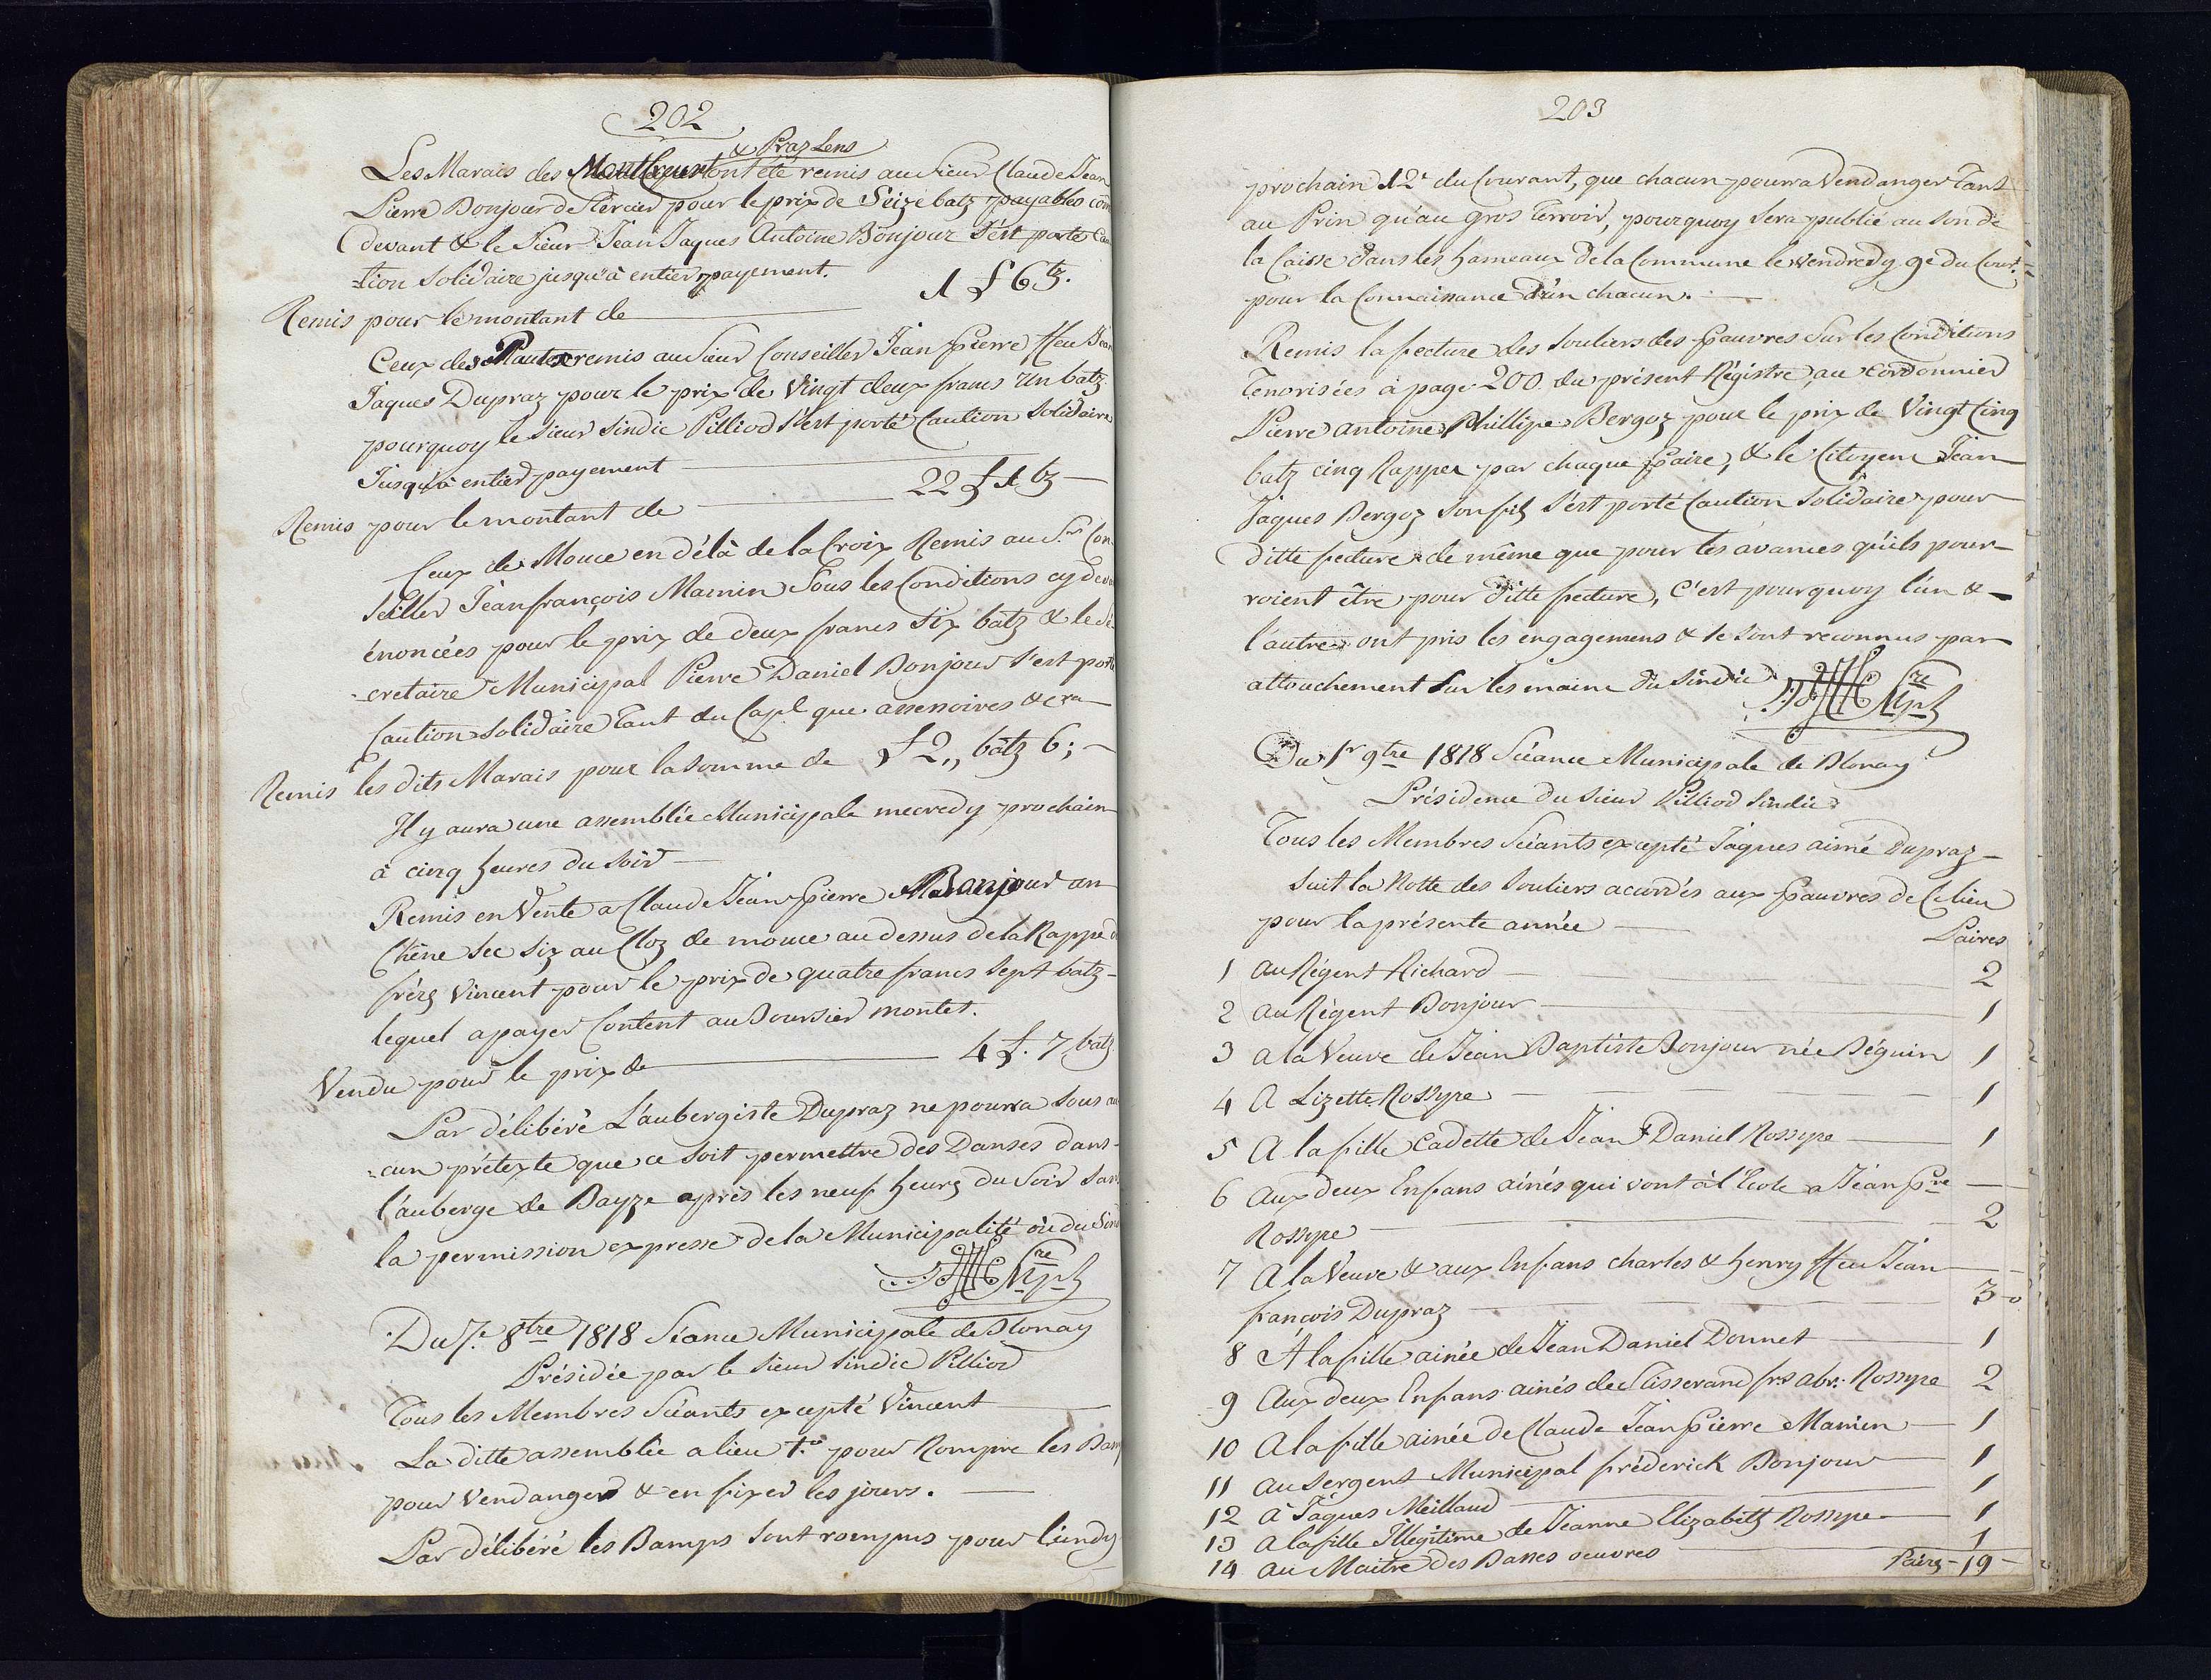 202
& Praz Lens
Les Marais des ont été remis au Sieur Claude Jean
Pierre Bonjour de Tercier pour le prix de Seize batz payables com
devant & le Sieur Jean Jaques Antoine Bonjour s'est porté Cau
-tion solidaire jusqu'à entier payement.
Remis pour le montant de 1 f 6 bz.
Ceux des remis au Sieur Conseiller Jean Pierre ffeu Jean
Jaques Dupraz pour le prix de Vingt deux francs un batz
pourquoy le Sieur Sindic Pilliod s'est porté Caution Solidaire
Jusqu'à entier payement
Remis pour le montant de 22 f 1 bz
Ceux de Mouce en délà de la Croix Remis au Sr Con-
seiller Jean françois Mamin Sous les Conditions cy devant
énoncées pour le prix de deux francs six batz & le Se-
-cretaire Municipal Pierre Daniel Bonjour s'est porté
Caution solidaire Tant du Capl que assessoires &cra
Remis les dits Marais pour la somme de f 2,, batz 6; -
Il y aura une assemblée Municipale mecredy prochain
à cinq heures du soir
Remis en Vente a Claude Jean Pierre Bonjour un
Chêne sec siz au Cloz de mouce au dessus de la Rappe de
frèrs Vincent pour le prix de quatre francs sept batz -
lequel a payer Content au Boursier montet.
Vendu pour le prix de 4 f. 7 batz
Par délibéré L'aubergiste Dupraz ne pourra sous au
-cun prétexte que ce soit permettre des Danses dans
l'auberge de Bayze après les neuf heurs du Soir San
la permission expresse de la Municipalité où du Sind
Du 7e 8tre 1818 Séance Municipale de Blonay
Présidée par le Sieur Sindic Pilliod
Tous les Membres Séants excepté Vincent
La ditte assemblée a lieu 1o pour Rompre les Bamps
pour Vendanger & en fixer les jours.
Par délibéré les Bamps sont rompus pour Lundy
203
prochain 12e du Courant, que chacun pourra Vendanger Tant
au Prin qu'au gros Terroir, pourquoy Sera publié au son de
la Caisse dans les hameaux de la Commune le Vendredy 9e du Court.
pour la Connaissance d'un chacun.
Remis la fecture des Souliers des pauvres Sur les Conditions
Tenorisées à page 200 du présent Régistre, au Cordonnier
Pierre antoine Phillipe Bergoz pour le prix de Vingt Cinq
batz cinq Rappes par chaque paire, & le Citoyen Jean
Jaques Bergoz son fils s'est porté Caution Solidaire pour
ditte fecture de même que pour les avances qu'ils pour-
roient être pour ditte fecture, C'est pourquoy l'un &
l'autre ont pris les engagemens & se sont reconnus par
attouchement Sur les mains du Sindic
Du 1r 9tre 1818 Séance Municipale de Blonay
Présidence du Sieur Pilliod Sindic
Tous les Membres Séants excepté Jaques aimé Dupraz -
Suit la Notte des Souliers acordés aux pauvres de Ce lieu
pour la présente année
Paires
1 au Régent Richard 2
2 au Régent Bonjour 1
3 a la Veuve de Jean Baptiste Bonjour née Béguin 1
4 A Lizette Rossyre 1
5 A la fille Cadette de Jean Daniel Rossyre 1
6 aux deux Enfans ainés qui vont à l'Ecole a Jean Pre
Rossyre 2
7 A la Veuve & aux Enfans charles & henry ffeu Jean
françois Dupraz 3
8 A la fille ainée de Jean Daniel Donnet 1
9 Aux deux Enfans ainés de Tisserand frs abr. Rossyre 2
10 A la fille ainée de Claude Jean Pierre Mamin 1
11 au Sergent Municipal fréderick Bonjour 1
12 à Jaques Meillaud 1
13 a la fille Illégitime de Jeanne Elizabeth Rossyre 1
14 au Maitre des Basses oeuvres 1
Pairs - 19 -